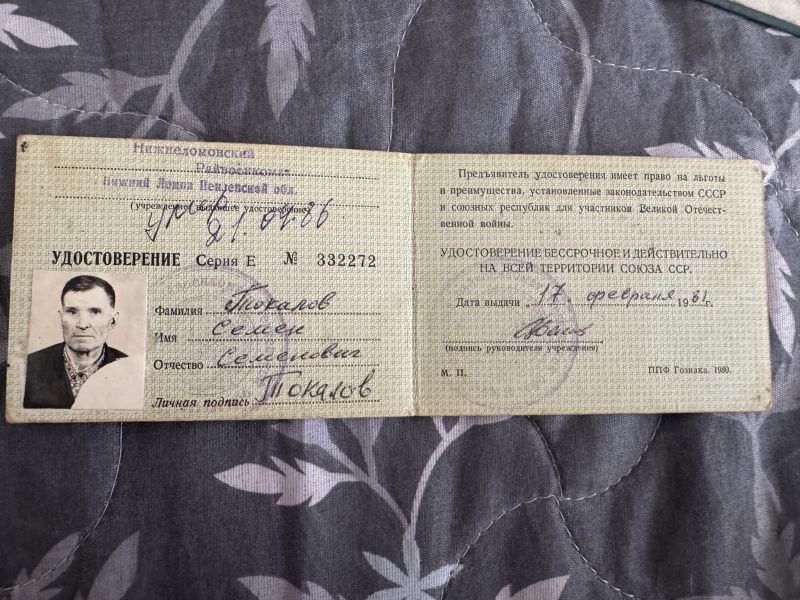 Нижнеломовский
Райвоенкомат
Нижний Ломов Пензенской обл.
(учреждение, выдавшее удостоверение)
умер 21.04.86
УДОСТОВЕРЕНИЕ Серия Е № 332272
Фамилия Токалов
Имя Семен
Отчество Семенович
Личная подпись Токалов
Предъявитель удостоверения имеет право на льготы
и преимущества, установленные законодательством СССР
и союзных республик для участников Великой Отечест-
венной войны.
УДОСТОВЕРЕНИЕ БЕССРОЧНОЕ И ДЕЙСТВИТЕЛЬНО
НА ВСЕЙ ТЕРРИТОРИИ СОЮЗА ССР.
Дата выдачи 17 февраля 1981г.
(подпись руководителя учреждения)
М. П. ППФ Гознака. 1980.